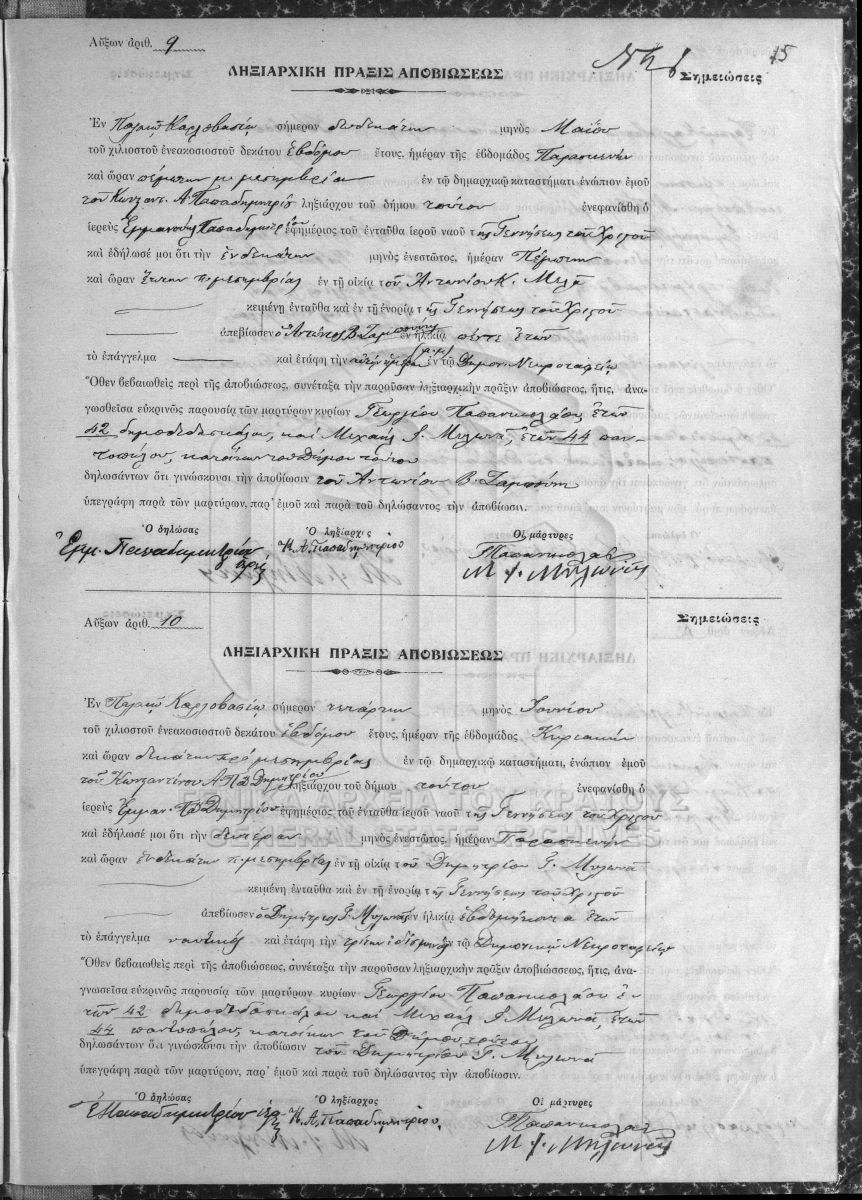 Αὔξων ἀριθ. 9
15
ΛΗΞΙΑΡΧΙΚΗ ΠΡΑΞΙΣ ΑΠΟΒΙΩΣΕΩΣ
Σημειώσεις
Ἐν Παλαιῷ Καρλοβασίῳ σήμερον δωδεκάτην μηνὸς Μαΐου
τοῦ χιλιοστοῦ ἐνεακοσιοστοῦ δεκάτου ἑβδόμου ἔτους, ἡμέραν τῆς ἑβδομάδος Παρασκευὴν
καὶ ὥραν πέμπτην μ. μεσημβρίαν ἐν τῷ δημαρχικῷ καταστήματι ἐνώπιον ἐμοῦ
τοῦ Κωνσταντ. Α. Παπαδημητρίου ληξιάρχου τοῦ δήμου τούτου ἐνεφανίσθη ὁ
ἱερεὺς Ἐμμανουὴλ Παπαδημητρίου ἐφημέριος τοῦ ἐνταῦθα ἱεροῦ ναοῦ τῆς Γεννήσεως τοῦ Χριστοῦ
καὶ ἐδήλωσέ μοι ὅτι τὴν ἑνδεκάτην μηνὸς ἐνεστῶτος, ἡμέραν Πέμπτην
καὶ ὥραν ἕκτην π. μεσημβρίας ἐν τῇ οἰκίᾳ τοῦ Ἀντωνίου Κ. Μελᾶ
κειμένῃ ἐνταῦθα καὶ ἐν τῇ ἐνορίᾳ τῆς Γεννήσεως τοῦ Χριστοῦ
ἀπεβίωσεν ὁ Ἀντώνιος Β. ἐν ἡλικίᾳ πέντε ἐτῶν
τὸ ἐπάγγελμα καὶ ἐτάφη τὴν αὐτὴν ἡμέραν (μ.μ) ἐν τῷ Δημοτ. Νεκροταφείῳ
Ὅθεν βεβαιωθεὶς περὶ τῆς ἀποβιώσεως, συνέταξα τὴν παροῦσαν ληξιαρχικὴν πρᾶξιν ἀποβιώσεως, ἥτις, ἀνα-
γνωσθεῖσα εὐκρινῶς παρουσίᾳ τῶν μαρτύρων κυρίων Γεωργίου Παπανικολάου, ἐτῶν
42 δημοδιδασκάλου, καὶ Μιχαὴλ Ι. Μυλωνᾶ, ἐτῶν 44 παν-
τοπώλου, κατοίκων τοῦ Δήμου τούτου
δηλωσάντων ὅτι γινώσκουσι τὴν ἀποβίωσιν τοῦ Ἀντωνίου Β.
ὑπεγράφη παρὰ τῶν μαρτύρων, παρ' ἐμοῦ καὶ παρὰ τοῦ δηλώσαντος τὴν ἀποβίωσιν.
Ὁ δηλώσας Ὁ ληξίαρχος Οἱ μάρτυρες
Ἐμμ. Παπαδημητρίου Κ. Α. Παπαδημητρίου Γ Παπανικολάου
ἱερεὺς Μ. Ι. Μυλωνᾶς
Αὔξων ἀριθ. 10
Σημειώσεις
ΛΗΞΙΑΡΧΙΚΗ ΠΡΑΞΙΣ ΑΠΟΒΙΩΣΕΩΣ
Ἐν Παλαιῷ Καρλοβασίῳ σήμερον τετάρτην μηνὸς Ἰουνίου
τοῦ χιλιοστοῦ ἐνεακοσιοστοῦ δεκάτου ἑβδόμου ἔτους, ἡμέραν τῆς ἑβδομάδος Κυριακὴν
καὶ ὥραν δεκάτην πρὸ μεσημβρίας ἐν τῷ δημαρχικῷ καταστήματι, ἐνώπιον ἐμοῦ
τοῦ Κωνσταντίνου Α. ΠΔημητρίου ληξιάρχου τοῦ δήμου τούτου ἐνεφανίσθη ὁ
ἱερεὺς Ἐμμαν. ΠΔημητρίου ἐφημέριος τοῦ ἐνταῦθα ἱεροῦ ναοῦ τῆς Γεννήσεως τοῦ Χριστοῦ
ΓΕΝΙΚΑ ΑΡΧΕΙΑ ΤΟΥ ΚΡΑΤΟΥΣ
GENERAL STATE ARCHIVES
καὶ ἐδήλωσέ μοι ὅτι τὴν δευτέραν μηνὸς ἐνεστῶτος, ἡμέραν Παρασκευὴν
καὶ ὥραν ἑνδεκάτην π. μεσημβρίας ἐν τῇ οἰκίᾳ τοῦ Δημητρίου Γ. Μυλωνᾶ
κειμένῃ ἐνταῦθα καὶ ἐν τῇ ἐνορίᾳ τῆς Γεννήσεως τοῦ Χριστοῦ
ἀπεβίωσεν ὁ Δημήτριος Γ. Μυλωνᾶς ἐν ἡλικίᾳ ἑβδομήκοντα ἐτῶν
τὸ ἐπάγγελμα ναυτικὸς καὶ ἐτάφη τὴν τρίτην ἰδίου μηνὸς ἐν τῷ Δημοτικῷ Νεκροταφείῳ
Ὅθεν βεβαιωθεὶς περὶ τῆς ἀποβιώσεως, συνέταξα τὴν παροῦσαν ληξιαρχικὴν πρᾶξιν ἀποβιώσεως, ἥτις, ἀνα-
γνωσεῖσα εὐκρινῶς παρουσίᾳ τῶν μαρτύρων κυρίων Γεωργίου Παπανικολάου ἐ-
τῶν 42 δημοδιδασκάλου καὶ Μιχαὴλ Ι. Μυλωνᾶ, ἐτῶν
44 παντοπώλου, κατοίκων τοῦ Δήμου τούτου
δηλωσάντων ὅτι γινώσκουσι τὴν ἀποβίωσιν τοῦ Δημητρίου Γ. Μυλωνᾶ
ὑπεγράφη παρὰ τῶν μαρτύρων, παρ' ἐμοῦ καὶ παρὰ τοῦ δηλώσαντος τὴν ἀποβίωσιν.
Ὁ δηλώσας Ὁ ληξίαρχος Οἱ μάρτυρες
Ε Παπαδημητρίου ἱερεὺς Κ. Α. Παπαδημητρίου Γ Παπανικολάου
Μ. Ι. Μυλωνᾶς